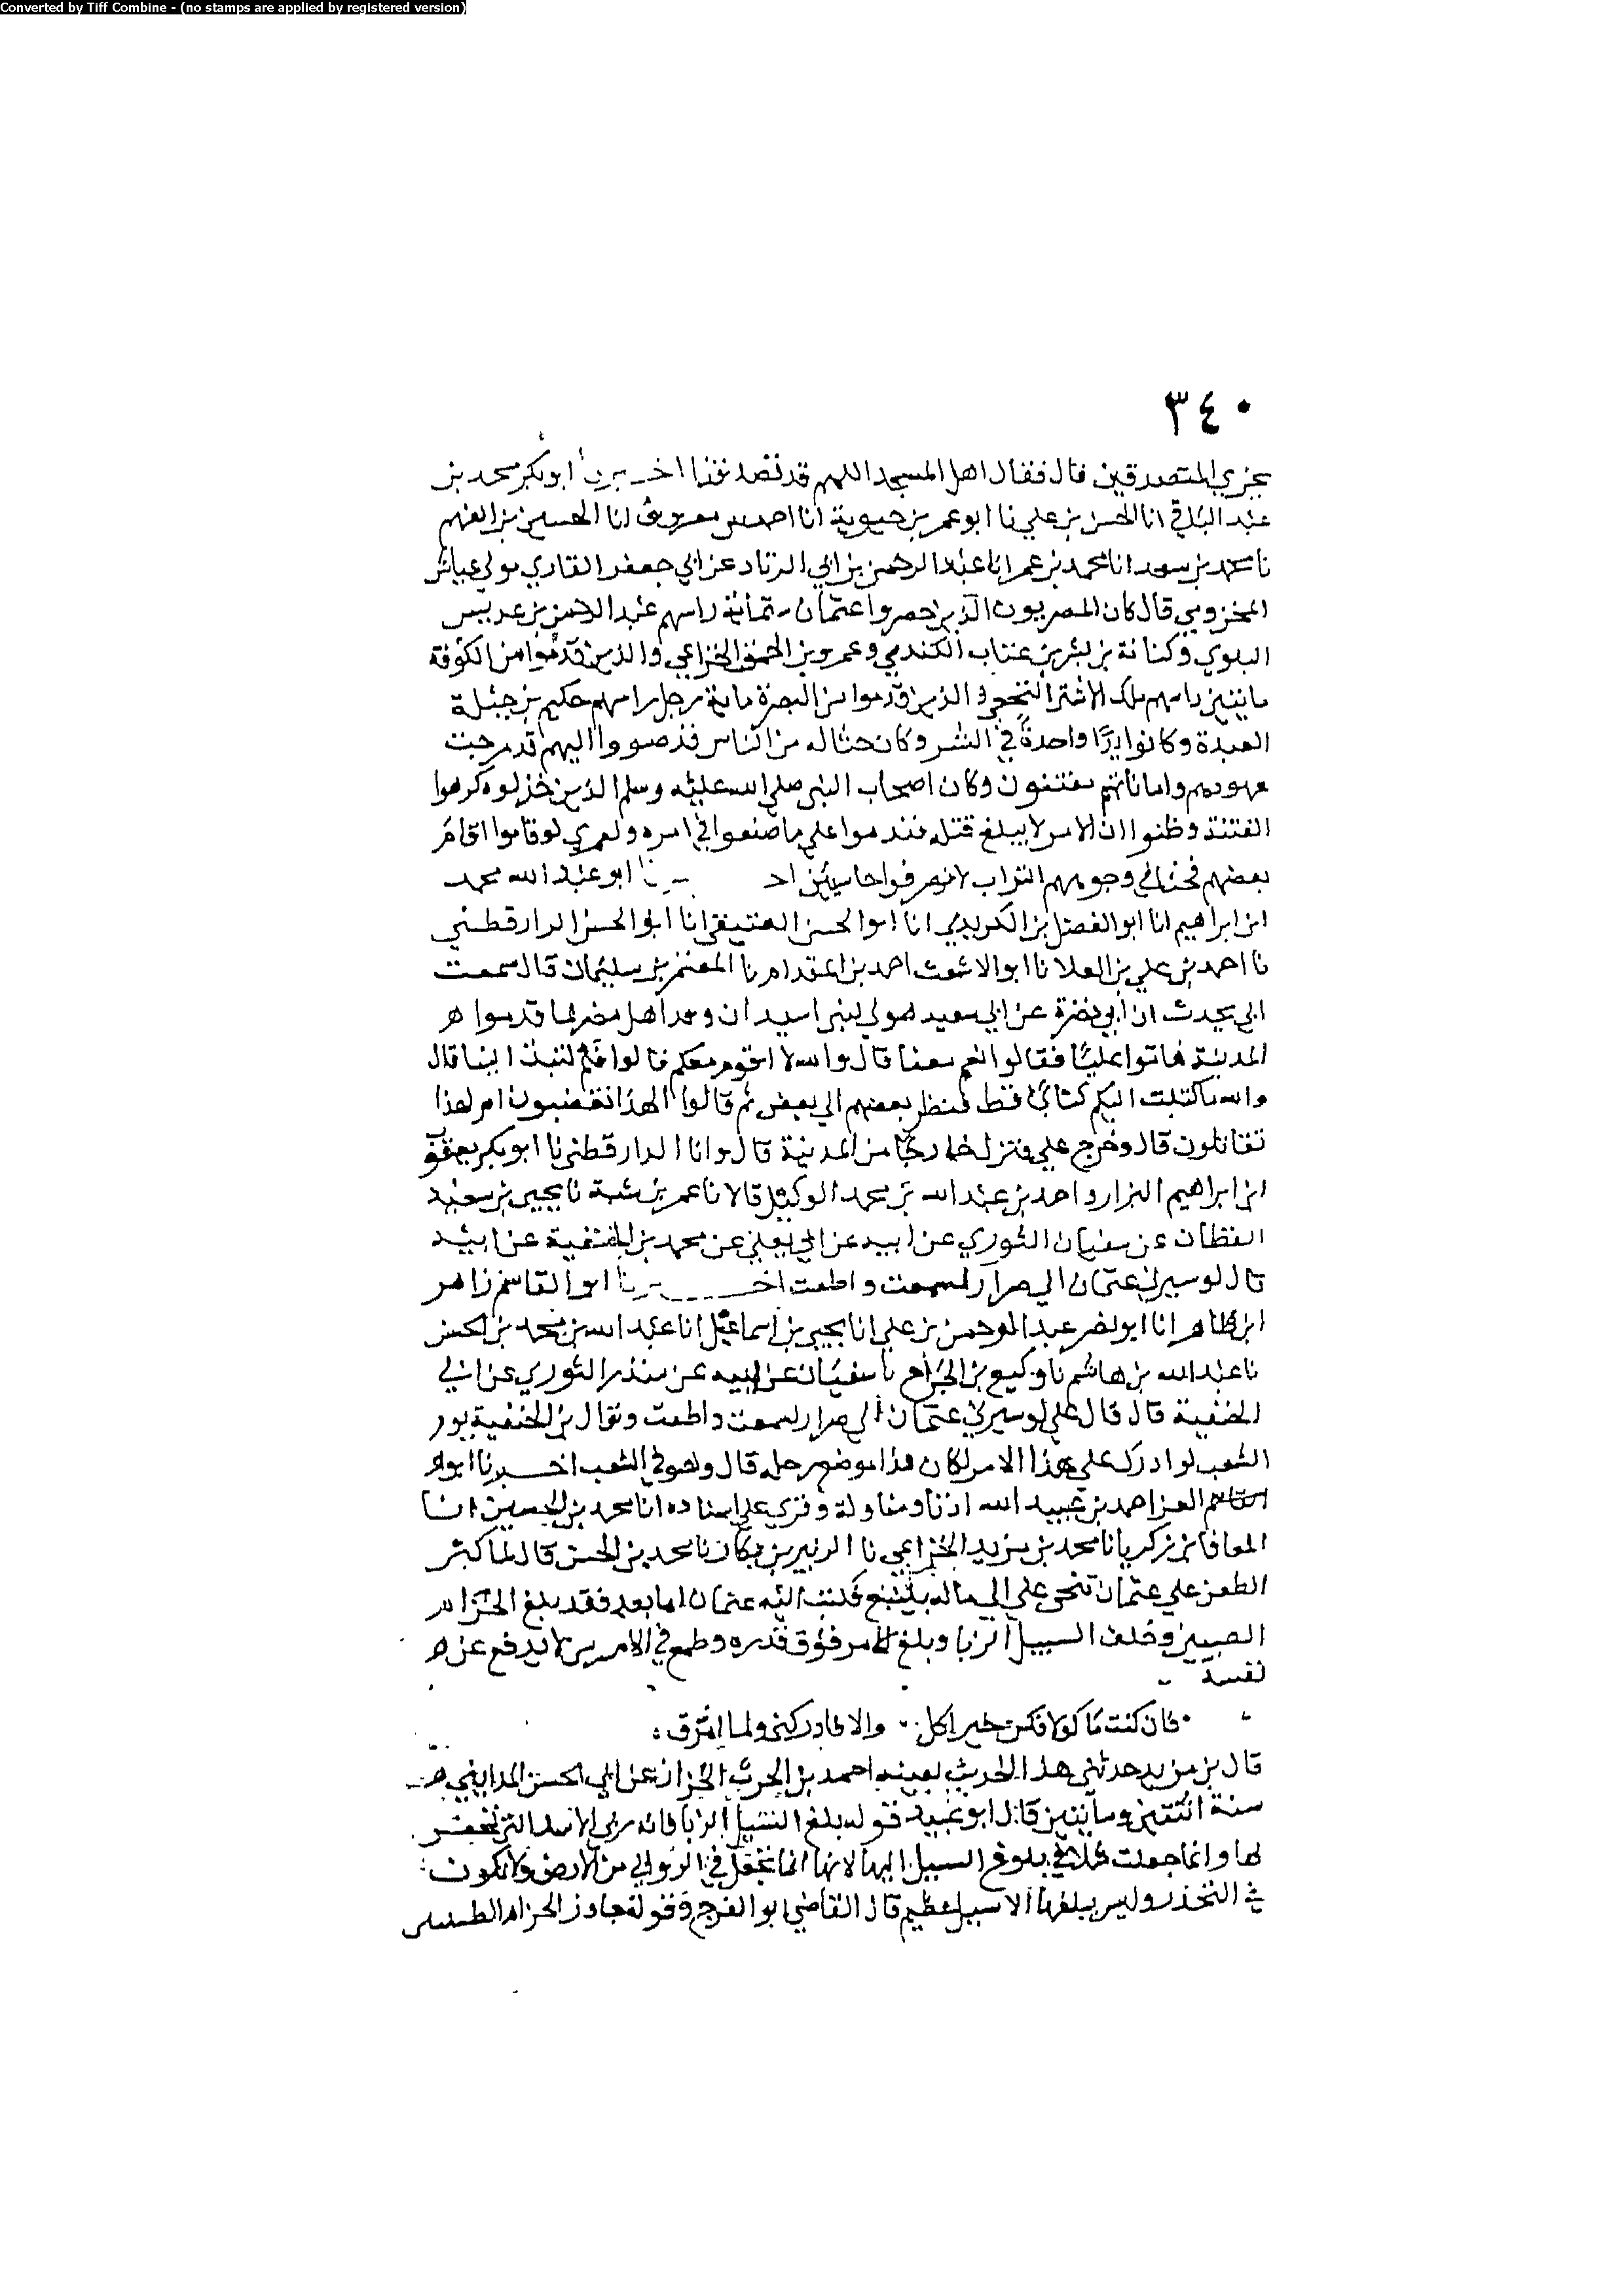 Converted by Tiff Combine - (no stamps are applied by registered version)
٣٤٠
يجزي المتصدقين قال فقال اهل المسجد اللهم قد تصدقنا اخبرنا ابو بكر محمد بن
عبد الباقي انا الحسن بن علي نا ابو عمر بن حيوية انا احمد بن معروف انا الحسين بن الفهم
نا محمد بن سعد انا محمد بن عمر انا عبد الرحمن بن ابي الزناد عن ابي جعفر القاري مولى عياش
المخزومي قال كان المصريون الذين حصروا عثمان ستمائة راسهم عبد الرحمن بن عديس
البلوي وكنانة بن بشر بن عتاب الكندي وعمرو بن الحمق الخزاعي والذين قدموا من الكوفة
مايتين راسهم ملك الاشتر النخعي والذين قدموا من البصرة ماية رجل راسهم حكيم بن جبلة
العبدة وكانوا يدا واحدة في الشر وكان حثالة من الناس قد ضووا اليهم قد مرجت
عهودهم واماناتهم مفتنون وكان اصحاب النبي صلى الله عليه وسلم الذين خذلوه كرهوا
الفتنة وظنوا ان الامر لا يبلغ قتله فندموا على ما صنعوا في امره ولعمري لو قاموا او قام
بعضهم فحثا في وجوههم التراب لانصرفوا خاسئين اخبرنا ابو عبد الله محمد
ابن ابراهيم انا ابو الفضل بن الكريدي انا ابو الحسن العتيقي انا ابو الحسن الدارقطني
نا احمد بن علي بن العلا نا ابو الاشعث احمد بن المقدام نا المعتمر بن سليمان قال سمعت
ابي يحدث ان ابي نضرة عن ابي سعيد مولى لبني اسيد ان وفد اهل مصر لما قدموا
المدينة فاتوا عليا فقالوا قم معنا قال والله لا اقوم معكم قالوا فلم كتبت الينا قال
والله ما كتبت اليكم كتابا قط فنظر بعضهم الى بعض ثم قالوا الهذا تغضبون ام لهذا
تقاتلون قال وخرج علي فنزل خارجا من المدينة قال وانا الدارقطني نا ابو بكر يعقوب
ابن ابراهيم البزار واحمد بن عبد الله بن محمد الوكيل قالا نا عمر بن شبة نا يحيى بن سعيد
القطان عن سفيان الثوري عن ابيه عن ابي يعلى عن محمد بن الحنفية عن ابيه
قال لو سيرني عثمان الى صرار لسمعت واطعت اخبرنا ابو القاسم زاهر
ابن طاهر انا ابو نصر عبد الرحمن بن علي انا يحيى بن اسماعيل انا عبد الله بن محمد بن الحسن
نا عبد الله بن هاشم نا وكيع بن الجراح نا سفيان عن ابيه عن منذر الثوري عن ابن
الحنفية قال قال علي لو سيرني عثمان الى صرار لسمعت واطعت وقال بن الحنفية يوم
الشعب لو ادرك علي هذا الامر لكان هذا موضع رحله قال وهو في الشعب اخبرنا ابو
العز احمد بن عبيد الله اذنا ومناولة وقرى علي اسناده انا محمد بن الحسين انا
المعافا بن زكريا نا محمد بن مزيد الخزاعي نا الزبير بن بكار نا محمد بن الحسن قال لما كثر
الطعن على عثمان تنحى علي الى ماله بينبع فكتب اليه عثمان اما بعد فقد بلغ الحزام
الطبيين وخلف السيل الزبا وبلغ الامر فوق قدره وطمع في الامر من لا يدفع عن
نفسه
فان كنت ماكولا فكن خير اكل والا فادركني ولما امزق
قال بن مزيد حدثني هذا الحديث بعينه احمد بن الحرث الخزاز عن ابي الحسن المدايني
سنة اثنتين ومايتين قال ابو عبيد قوله بلغ السيل الزبا فانه زبى الاسد التي تحفر
لها وانما جعلت مثلا في بلوغ السيل اليها لانها انما تجعل في الروابي من الارض ولا تكون
في المنحدر وليس يبلغها الا سيل عظيم قال القاضي ابو الفرج وقوله جاوز الحزام الطبيين